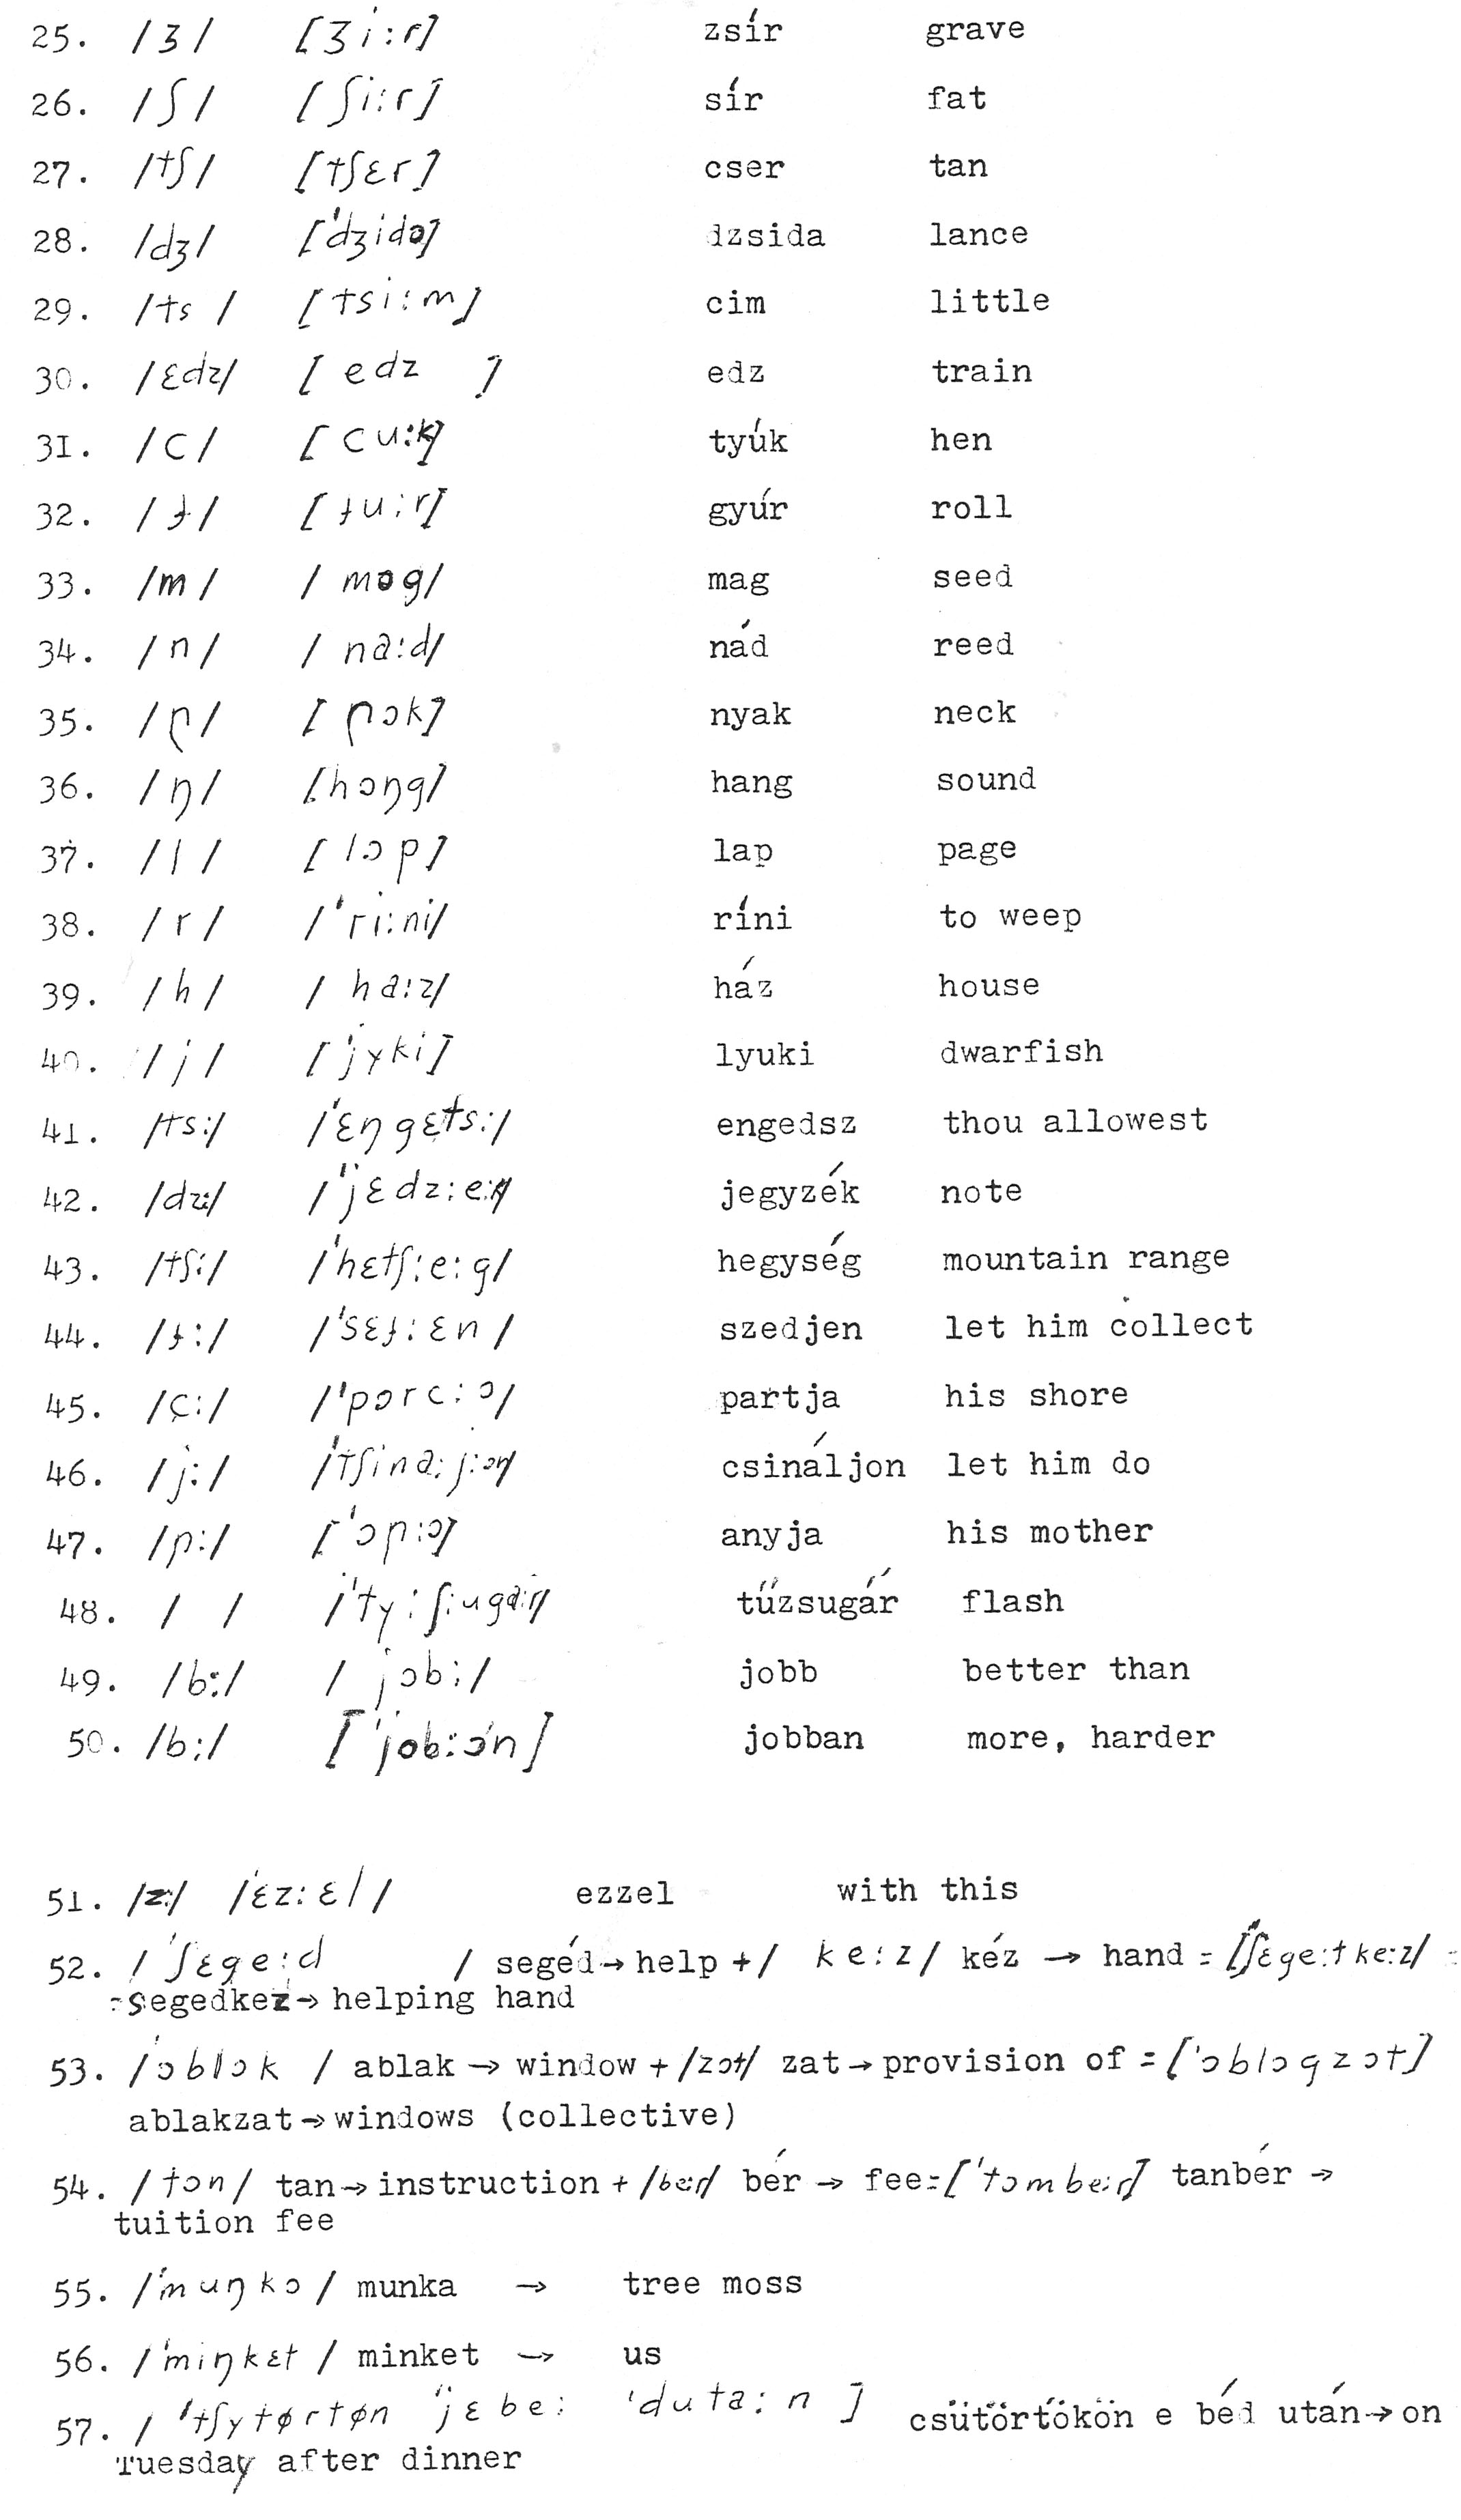 25. /ʒ/ [ʒi:r] zsír grave
26. /ʃ/ [ʃi:r] sír fat
27. /tʃ/ [tʃɛr] cser tan
28. /dʒ/ ['dʒidɔ] dzsida lance
29. /ts / [tsi:m] cim little
30. /ɛdz/ [ edz ] edz train
31. /c/ [cu:k] tyúk hen
32. /ɟ/ [ɟu:r] gyúr roll
33. /m/ / mɔg/ mag seed
34. /n/ / na:d/ nád reed
35. /ɲ/ [ɲɔk] nyak neck
36. /ŋ/ [hɔŋg/ hang sound
37. /l/ [lɔp] lap page
38. /r/ /'ri:ni/ ríni to weep
39. /h/ / ha:z/ ház house
40. /j/ ['jyki] lyuki dwarfish
41. /ts:/ /'ɛŋgɛts:/ engedsz thou allowest
42. /dz:/ /'jɛdz:e:k/ jegyzék note
43. /tʃ:/ /'hɛtʃ:e:g/ hegység mountain range
44. /ɟ:/ /'sɛɟ:ɛn/ szedjen let him collect
45. /ç:/ /'pɔrc:ɔ/ partja his shore
46. /j:/ /'tʃina:j:ɔn/ csináljon let him do
47. /ɲ:/ ['ɔɲ:ɔ] anyja his mother
48. / / /'ty:ʃ:uga:r/ tűzsugár flash
49. /b:/ / jɔb:/ jobb better than
50. /b:/ ['job:ɔn] jobban more, harder
51. /z:/ /'ɛz:ɛl/ ezzel with this
52. /'ʃɛge:d / segéd→help +/ ke:z/ kéz → hand = [ʃɛge:tke:z/ =
=segedkez→ helping hand
53. /'ɔblɔk / ablak → window + /zɔt/ zat→provision of = ['ɔblɔgzɔt]
ablakzat→windows (collective)
54. /tɔn/ tan→instruction + /be:r/ bér → fee=['tɔmbe:r] tanbér →
tuition fee
55. /'muŋkɔ/ munka → tree moss
56. /'miŋkɛt/ minket → us
57. / 'tʃytørtøn "jɛbe: 'duta:n ] csütörtökön e béd után→on
Tuesday after dinner